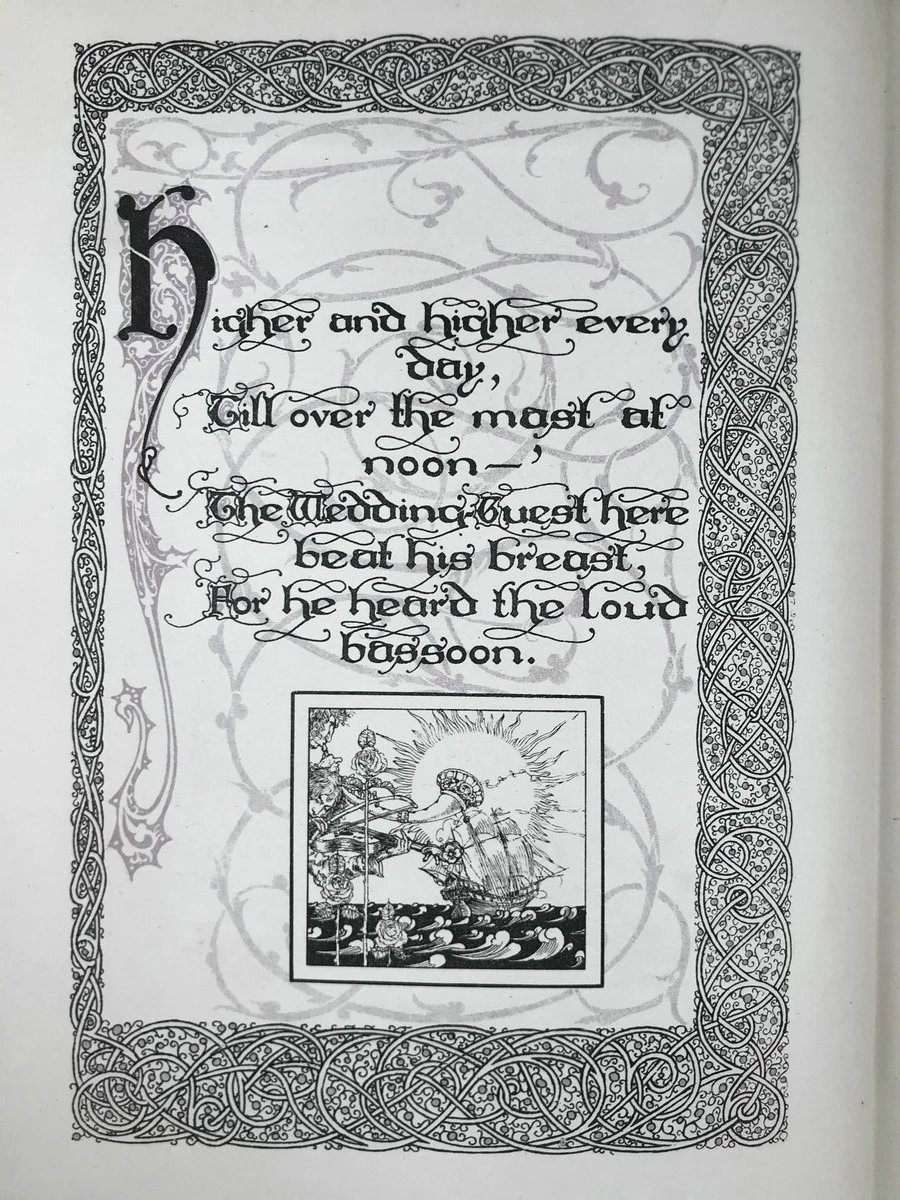 Higher and higher every
day,
Till over the mast at
noon—'
The Wedding-Guest here
beat his breast,
For he heard the loud
bassoon.